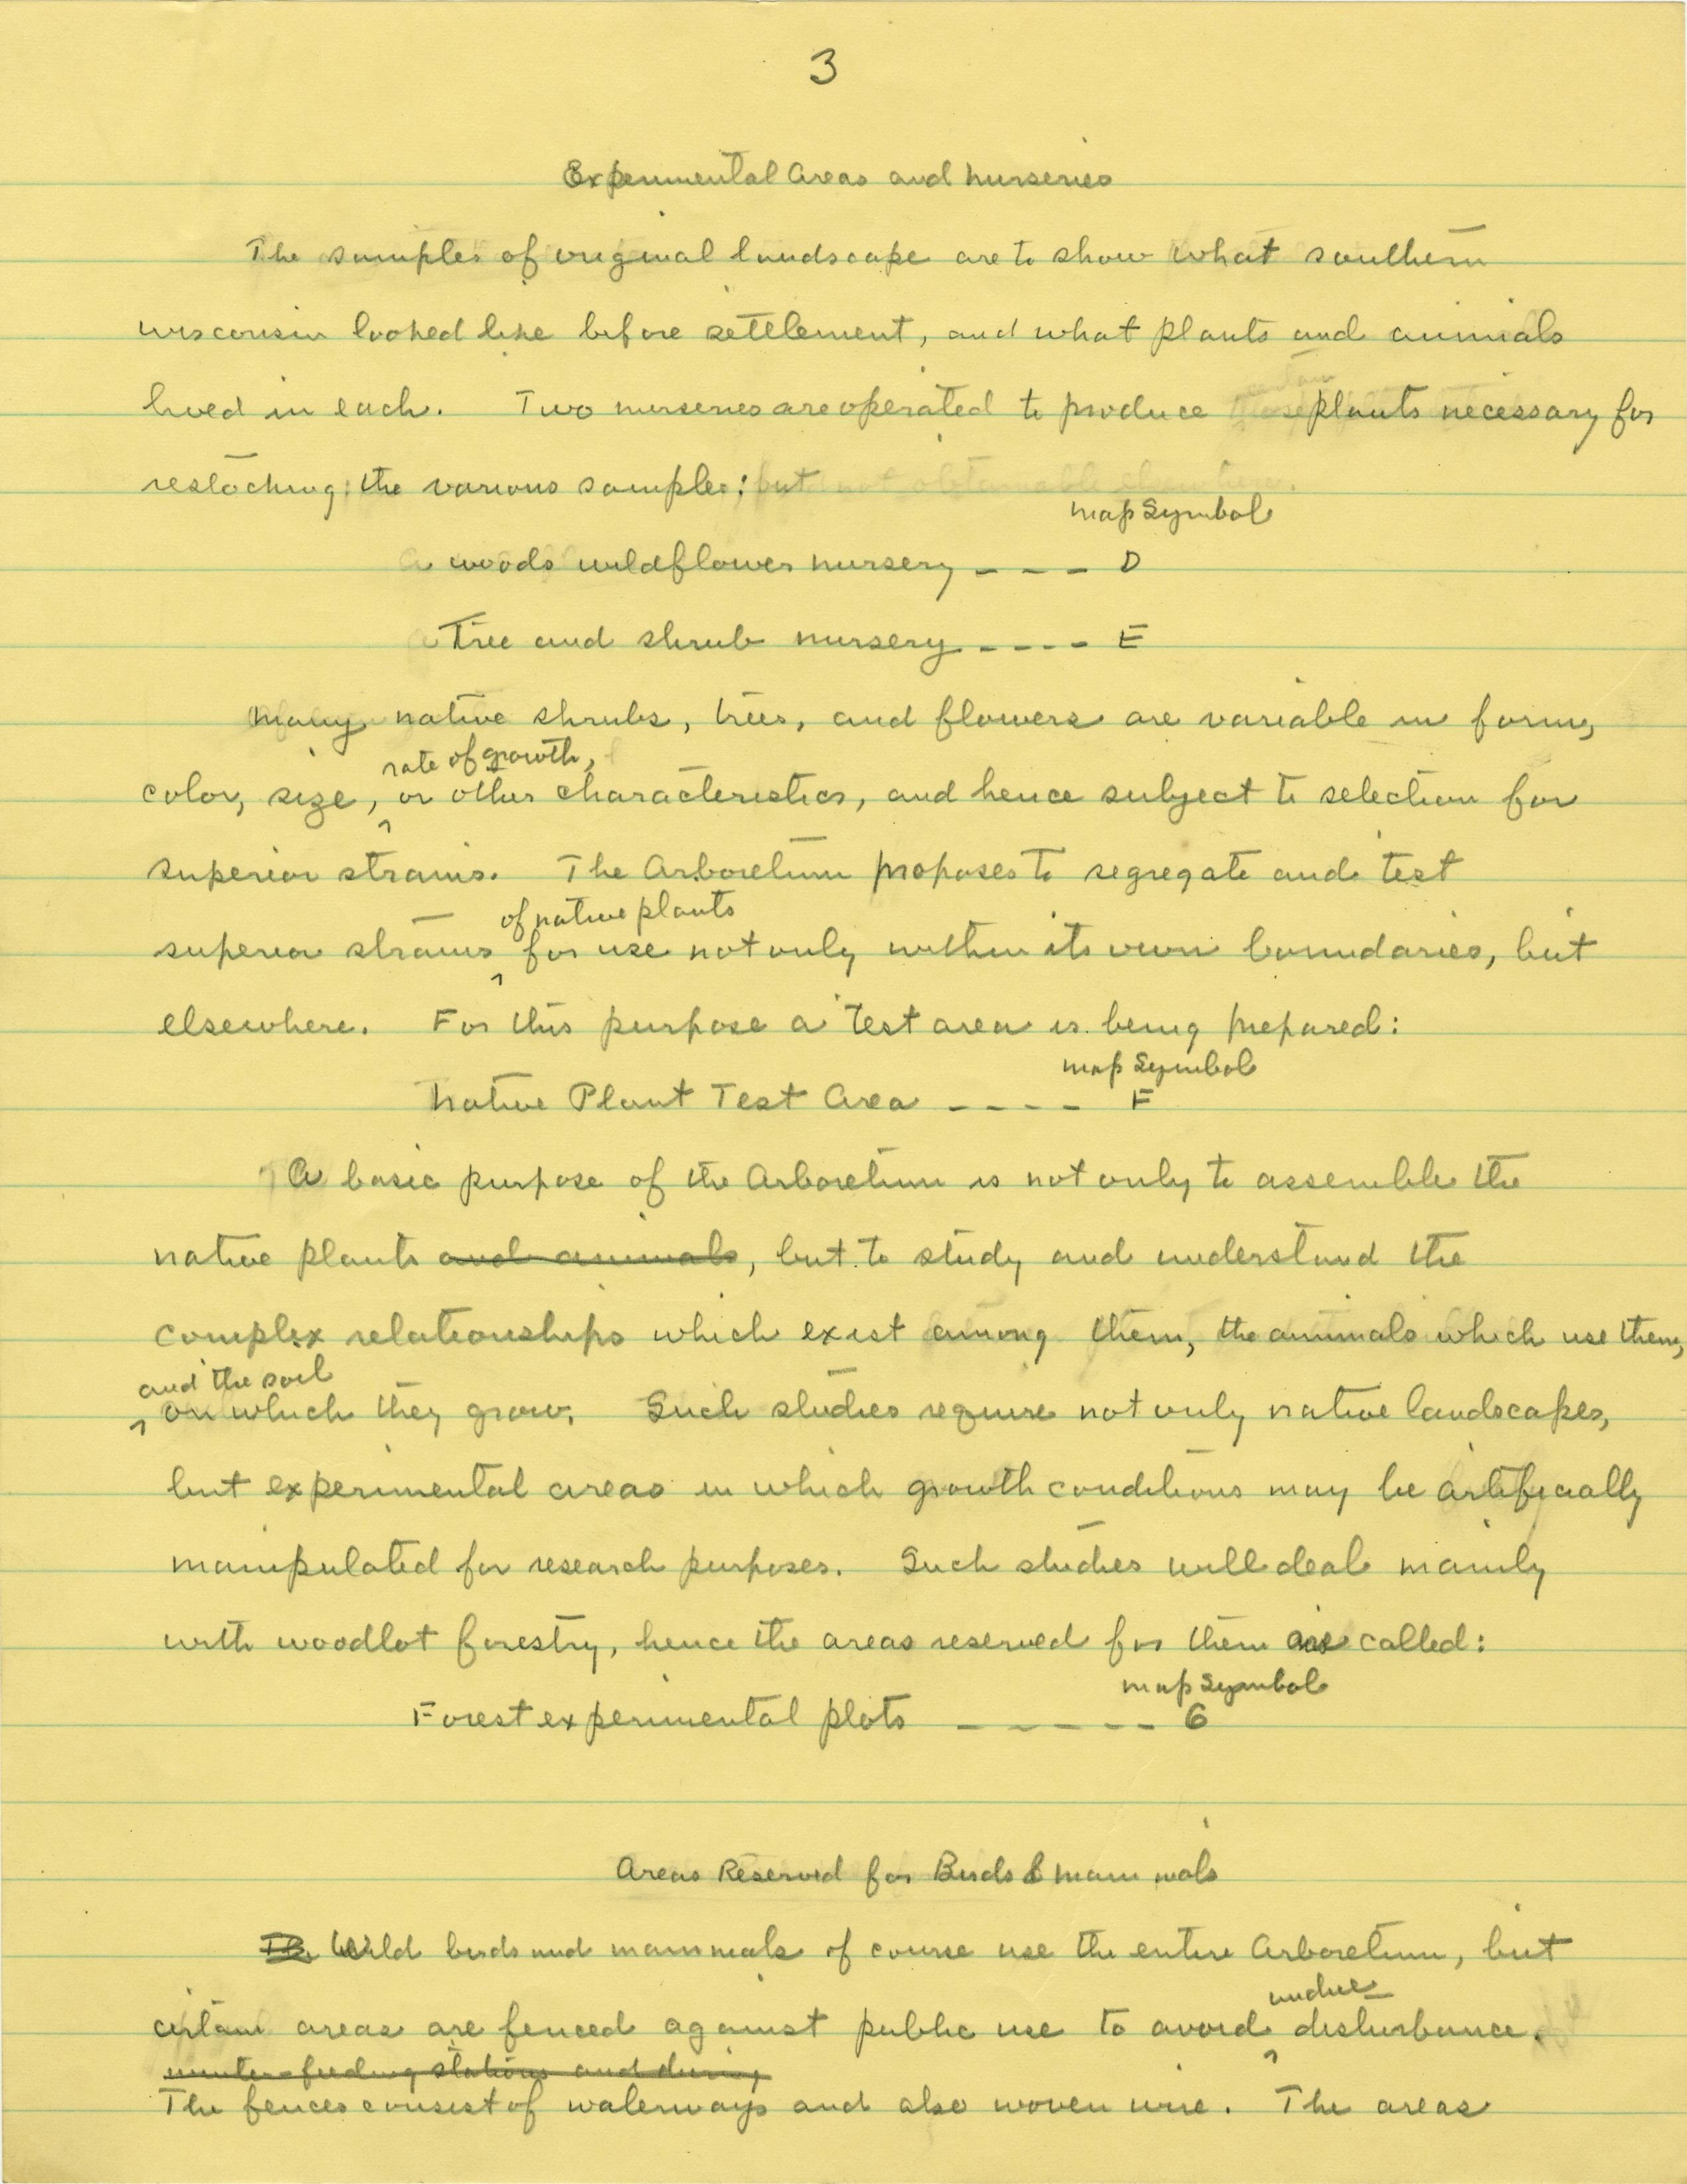 3
Experimental Areas and Nurseries
The samples of original landscape are to show what southern
Wisconsin looked like before settlement, and what plants and animals
lived in each. Two nurseries are operated to produce plants necessary for
restocking the various samples:
Map Symbol
woods wildflower nursery - - - - D
Tree and shrub nursery - - - - E
Many native shrubs, trees, and flowers are variable in form,
rate of growth,
color, size, or other characteristics, and hence subject to selection for
superior strains. The Arboretum proposes to segregate and test
of native plants
superior strains for use not only within its own boundaries, but
elsewhere. For this purpose a test area is being prepared:
Map Symbol
Native Plant Test Area - - - - F
A basic purpose of the Arboretum is not only to assemble the
native plants and animals, but to study and understand the
complex relationships which exist among them, the animals which use them,
and the soil
on which they grow. Such studies require not only native landscapes,
but experimental areas in which growth conditions may be artificially
manipulated for research purposes. Such studies will deal mainly
with woodlot forestry, hence the areas reserved for them are called:
Map Symbol
Forest experimental plots - - - - - G
Areas Reserved for Birds & Mammals
The Wild birds and mammals of course use the entire Arboretum, but
undue
certain areas are fenced against public use to avoid disturbance.
winter feeding stations and during
The fences consist of waterways and also woven wire. The areas